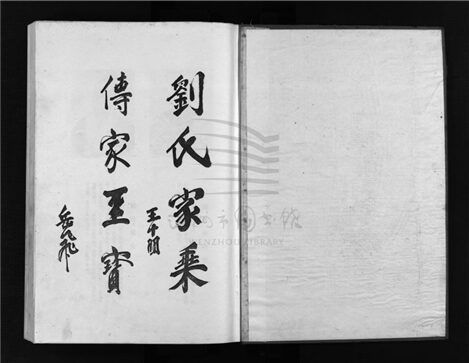 劉氏家乘
王十朋
傳家至寶
岳飛
温州市图书馆
WENZHOU LIBRARY